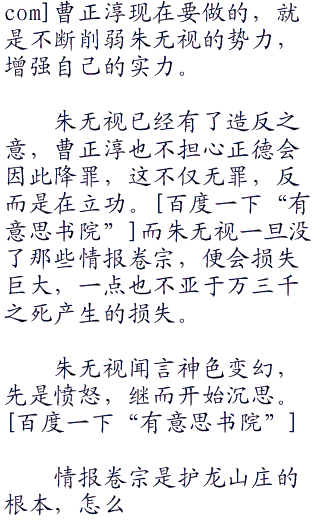 com]曹正淳现在要做的，就
是不断削弱朱无视的势力，
增强自己的实力。
朱无视已经有了造反之
意，曹正淳也不担心正德会
因此降罪，这不仅无罪，反
而是在立功。[百度一下“有
意思书院”]而朱无视一旦没
了那些情报卷宗，便会损失
巨大，一点也不亚于万三千
之死产生的损失。
朱无视闻言神色变幻，
先是愤怒，继而开始沉思。
[百度一下“有意思书院”]
情报卷宗是护龙山庄的
根本，怎么